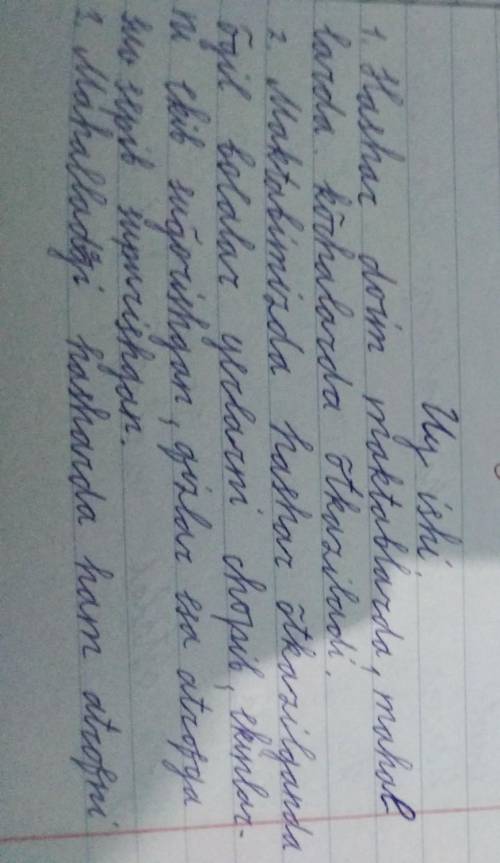 Uy ishi.
1. Hashar doim maktablarda, mahal
larda. kõchalarda õtkaziladi.
2. Maktabimizda hashar õtkazilganda
õgil bolalar yerlarni chopib, ekinlar-
ni ekib sug̃orishgan, qizlar esa atrofga
suv sepib supurishgan.
2. Mahalladagi hasharda ham atrofni